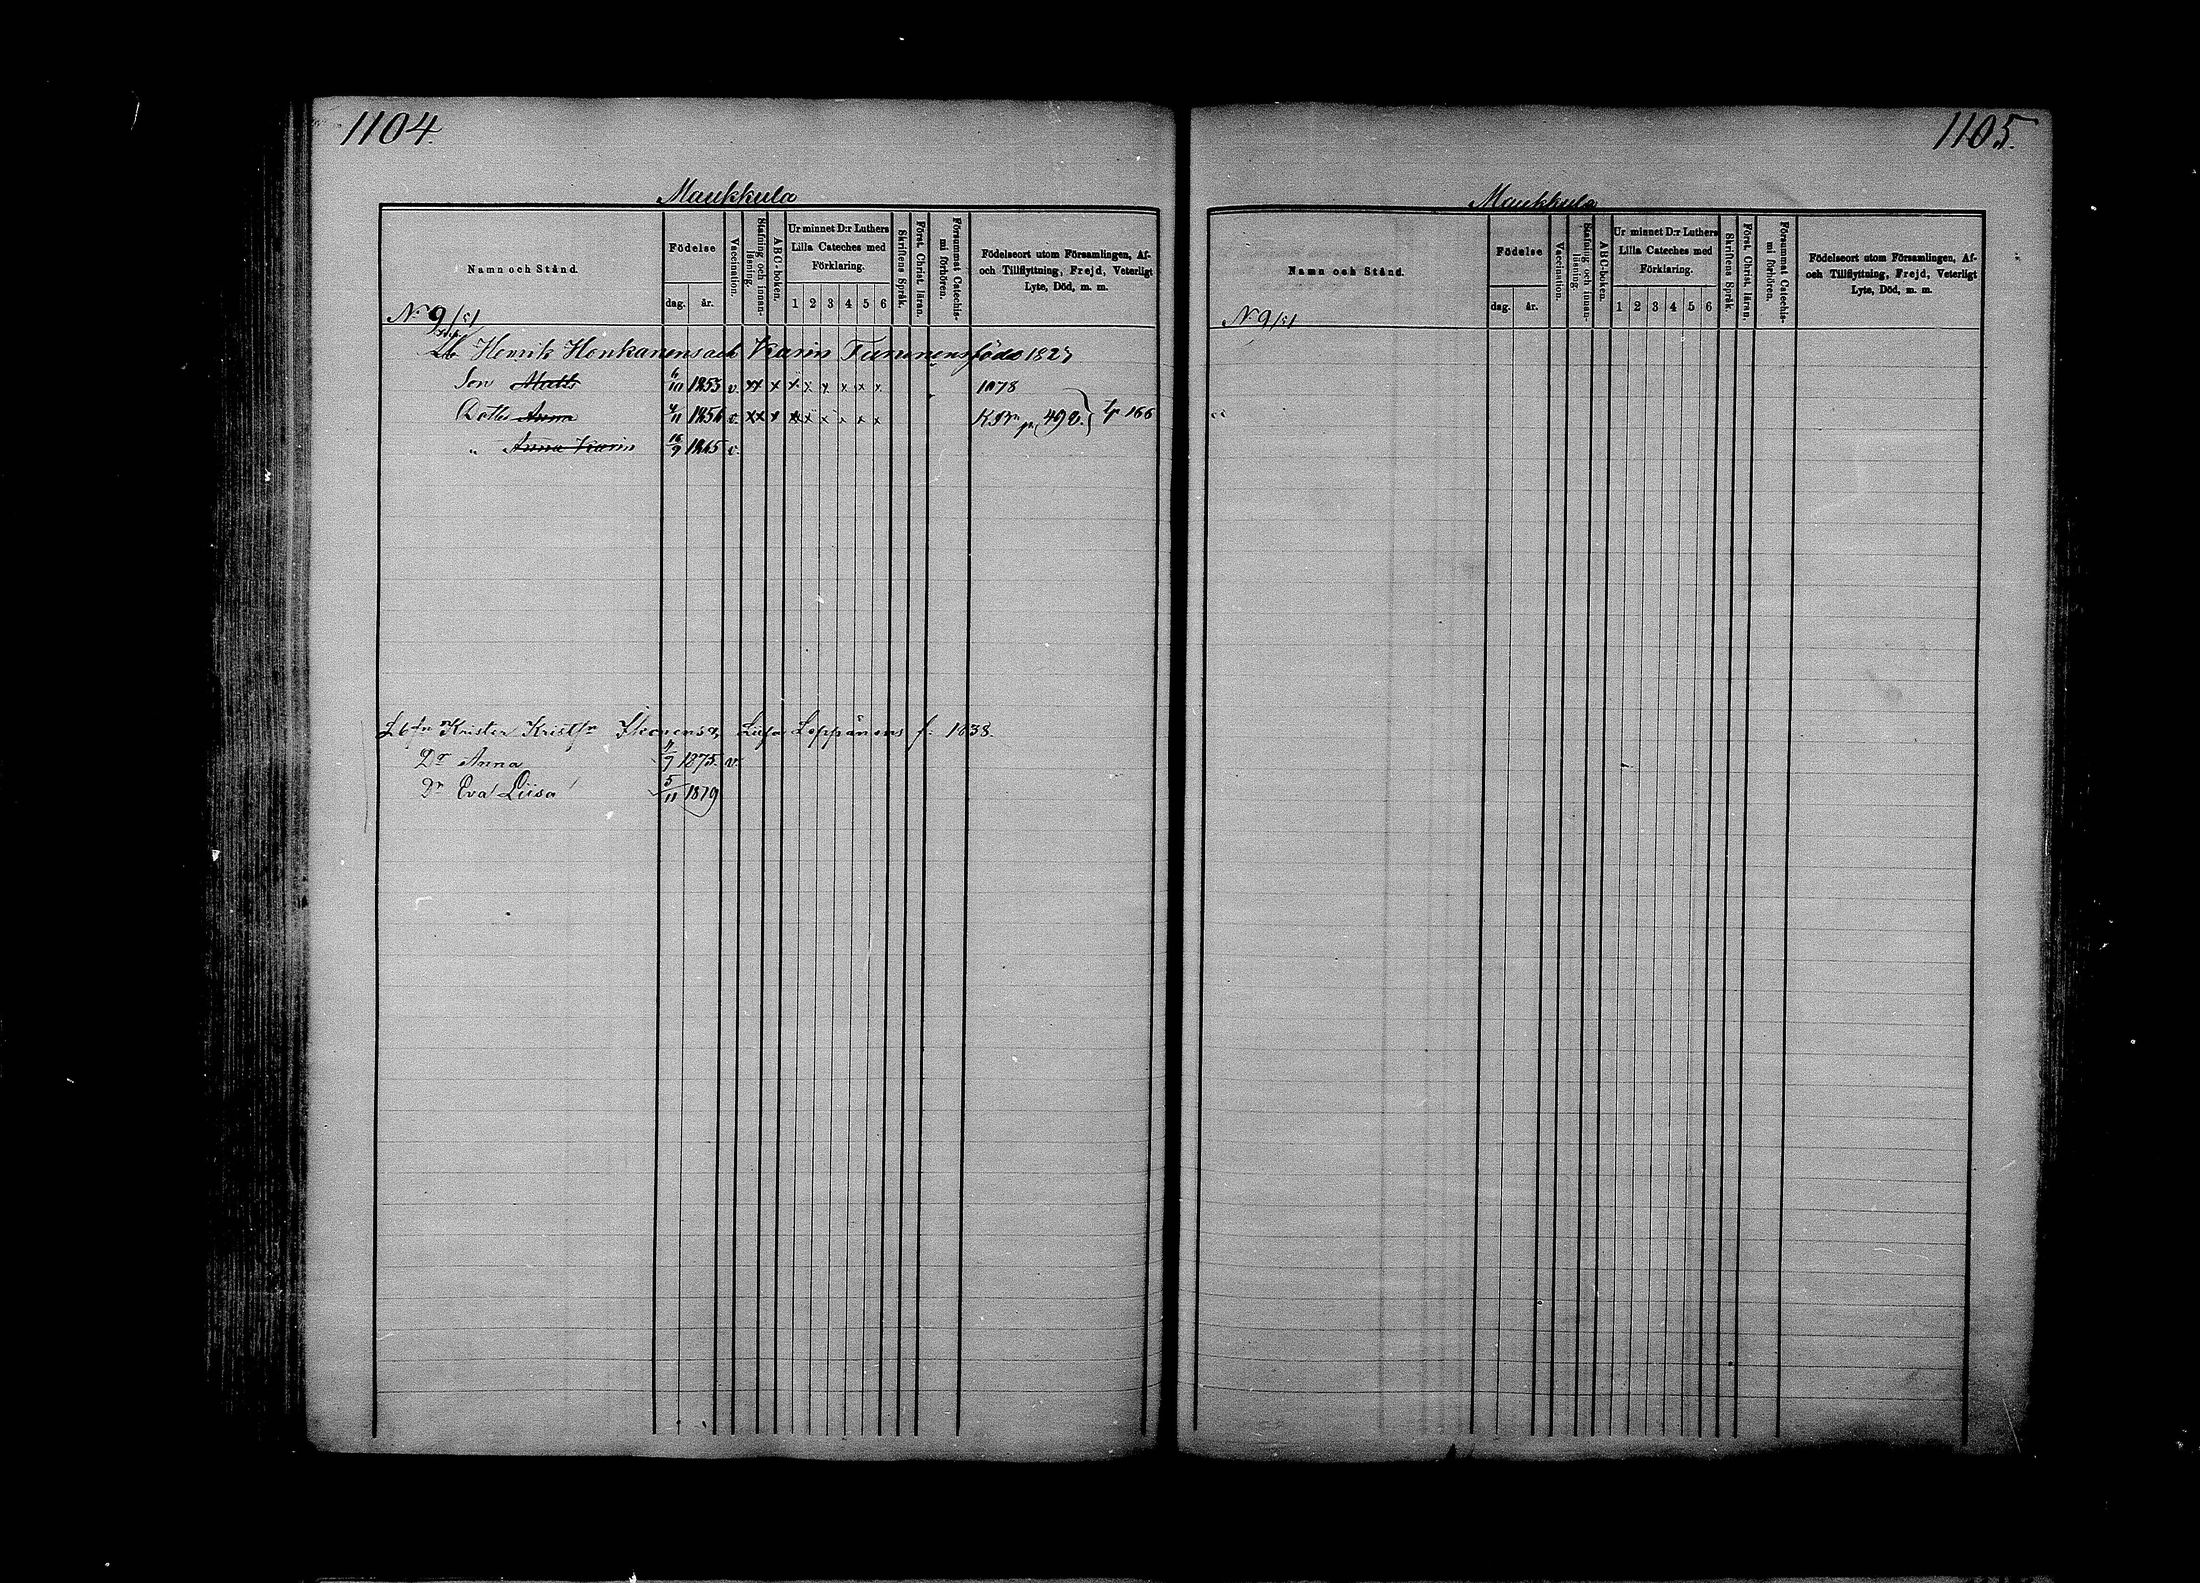 1104.
Maukkula
Namn och Stånd.
Födelse
dag. år.
Vaccination.
Stafning och innanläsning.
ABC-boken.
Ur minnet D:r Luthers Lilla Cateches med Förklaring.
1 2 3 4 5 6
Skriftens Språk.
Först. Christ. läran.
Försummat Catechismi förhören.
Födelseort utom Församlingen, Af- och Tillflyttning, Frejd, Veterligt Lyte, Död, m. m.
N:o 9/51
Henrik Honkanens och Karin Tammonens föde 1827
Son Matts 6/10 1853 v. xx x x x x x x x 1078
Dotter Anna 4/11 1856 v. xx x x x x x x x 166
" Anna Karin 16/9 1865 v.
Krister Liisa Leppänens f. 1838.
Dr Anna 11/9 1875. v.
Dr Eva Liisa 5/11 1879
1105.
Maukkula
Namn och Stånd.
Födelse
dag. år.
Vaccination.
Stafning och innanläsning.
ABC-boken.
Ur minnet D:r Luthers Lilla Cateches med Förklaring.
1 2 3 4 5 6
Skriftens Språk.
Först. Christ. läran.
Försummat Catechismi förhören.
Födelseort utom Församlingen, Af- och Tillflyttning, Frejd, Veterligt Lyte, Död, m. m.
N:o 9/51